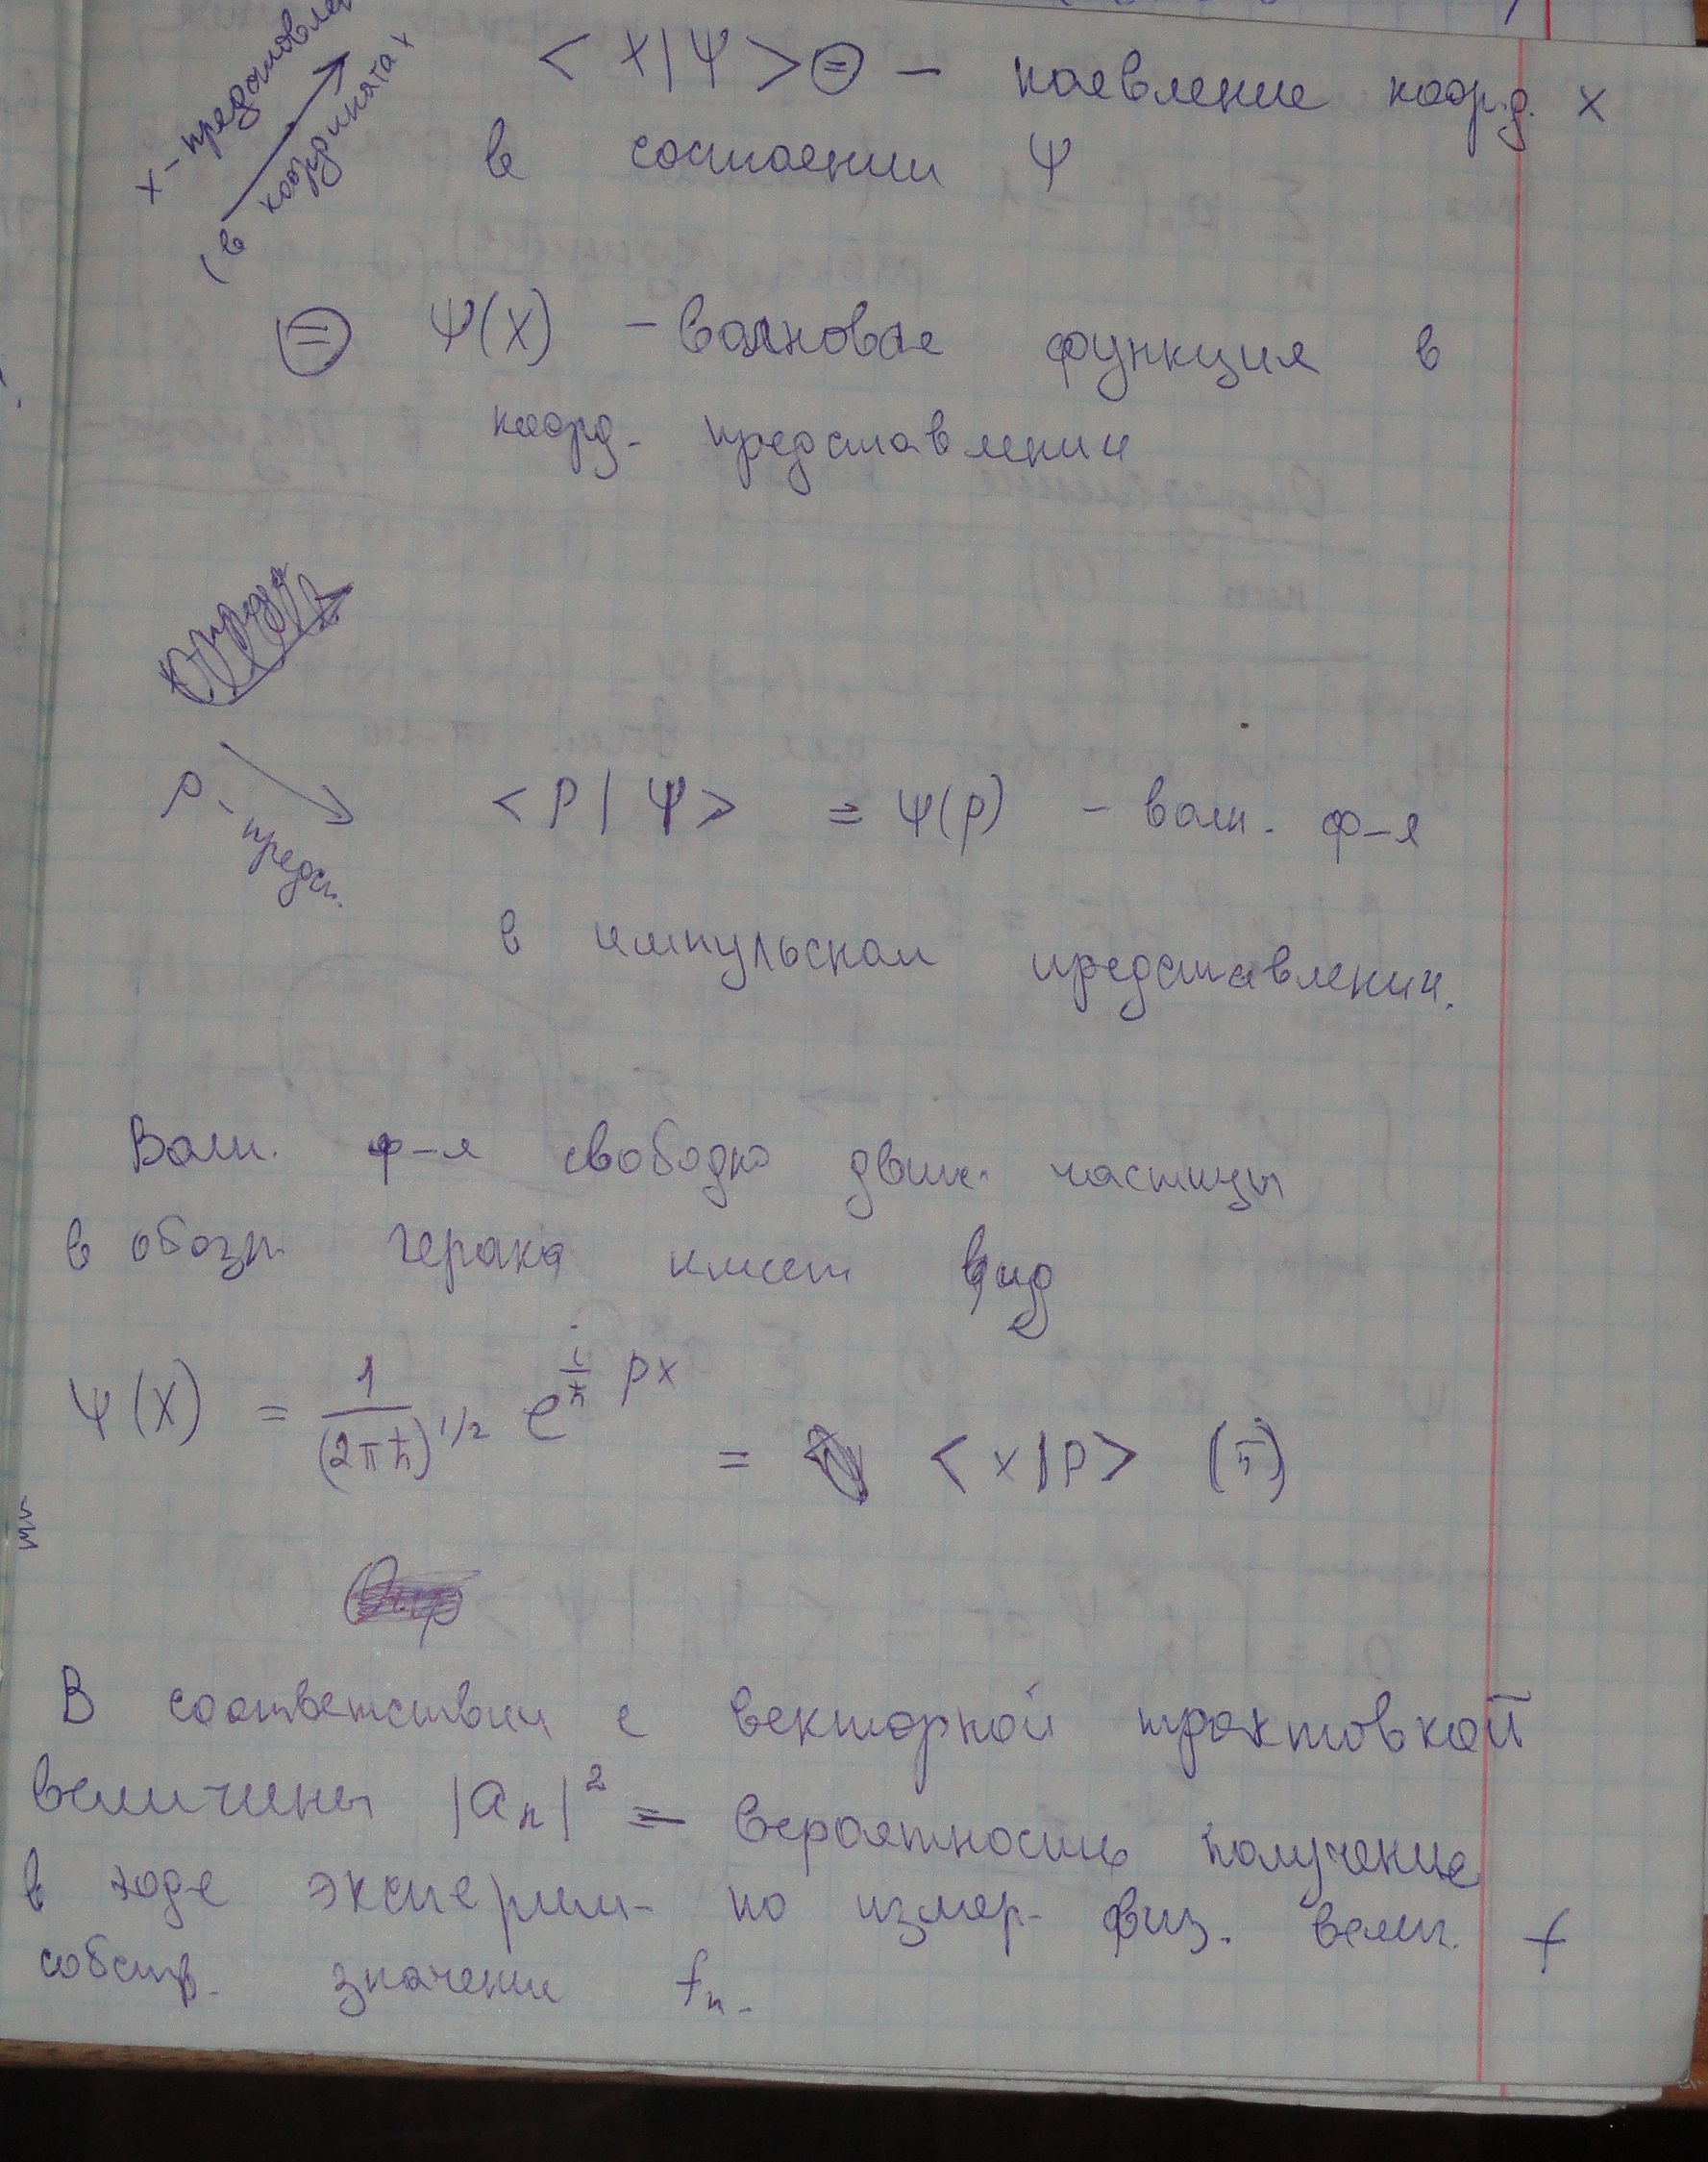 x - предста
(в координатах
< x | Ψ > ⊜ – появление коорд. x
в состоянии Ψ
⊜ Ψ(x) – волновая функция в
коорд. представлении
p - предст.
< p | Ψ > = Ψ(p) – волн. ф-я
в импульсном представлении.
Волн. ф-я свободно движ. частицы
в обозн. Дирака имеет вид
Ψ(x) = 1/(2πħ)^1/2 e^(i/ħ px) = < x | p > (5)
В соответствии с векторной трактовкой
величины |aₙ|² – вероятность получение
в ходе эксперим. по измер. физ. велич. f
собств. значение fₙ.